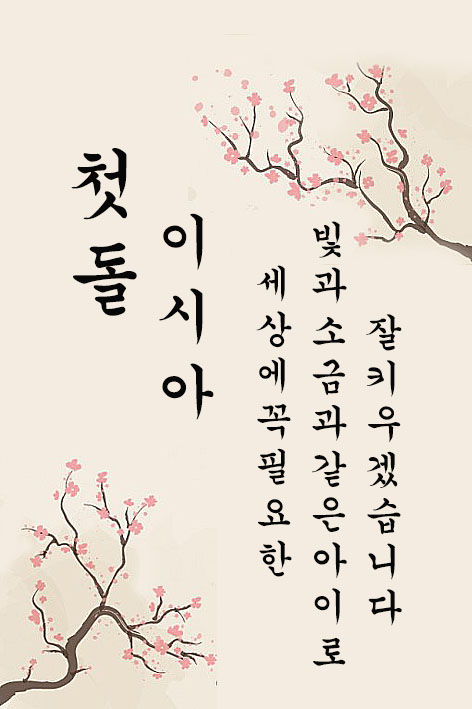 첫돌
이시아
세상에꼭필요한
빛과소금과같은아이로
잘키우겠습니다